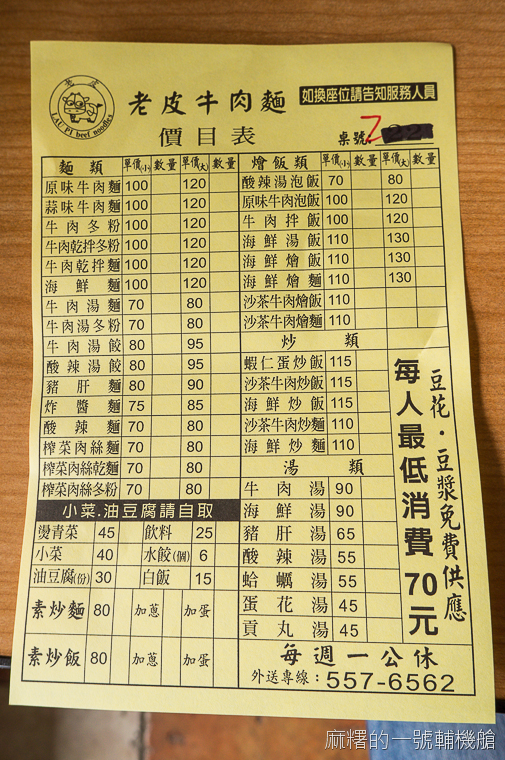 老皮
LAU PI beef noodles
老皮牛肉麵
如換座位請告知服務人員
價目表
桌號
麵類 單價(小) 數量 單價(大) 數量
原味牛肉麵 100 120
蒜味牛肉麵 100 120
牛肉冬粉 100 120
牛肉乾拌冬粉 100 120
牛肉乾拌麵 100 120
海鮮麵 100 120
牛肉湯麵 70 80
牛肉湯冬粉 70 80
牛肉湯餃 80 95
酸辣湯餃 80 95
豬肝麵 80 90
炸醬麵 75 85
酸辣麵 70 80
榨菜肉絲麵 70 80
榨菜肉絲乾麵 70 80
榨菜肉絲冬粉 70 80
小菜.油豆腐請自取
燙青菜 45 飲料 25
小菜 40 水餃(個) 6
油豆腐(份) 30 白飯 15
素炒麵 80 加蔥 加蛋
素炒飯 80 加蔥 加蛋
燴飯類 單價(小) 數量 單價(大) 數量
酸辣湯泡飯 70 80
原味牛肉泡飯 100 120
牛肉拌飯 100 120
海鮮湯飯 110 130
海鮮燴飯 110 130
海鮮燴麵 110 130
沙茶牛肉燴飯 110
沙茶牛肉燴麵 110
炒類
蝦仁蛋炒飯 115
沙茶牛肉炒飯 115
海鮮炒飯 115
沙茶牛肉炒麵 110
海鮮炒麵 110
湯類
牛肉湯 90
海鮮湯 90
豬肝湯 65
酸辣湯 55
蛤蠣湯 55
蛋花湯 45
貢丸湯 45
豆花．豆漿免費供應
每人最低消費70元
每週一公休
外送專線：557-6562
麻糬的一號輔機艙